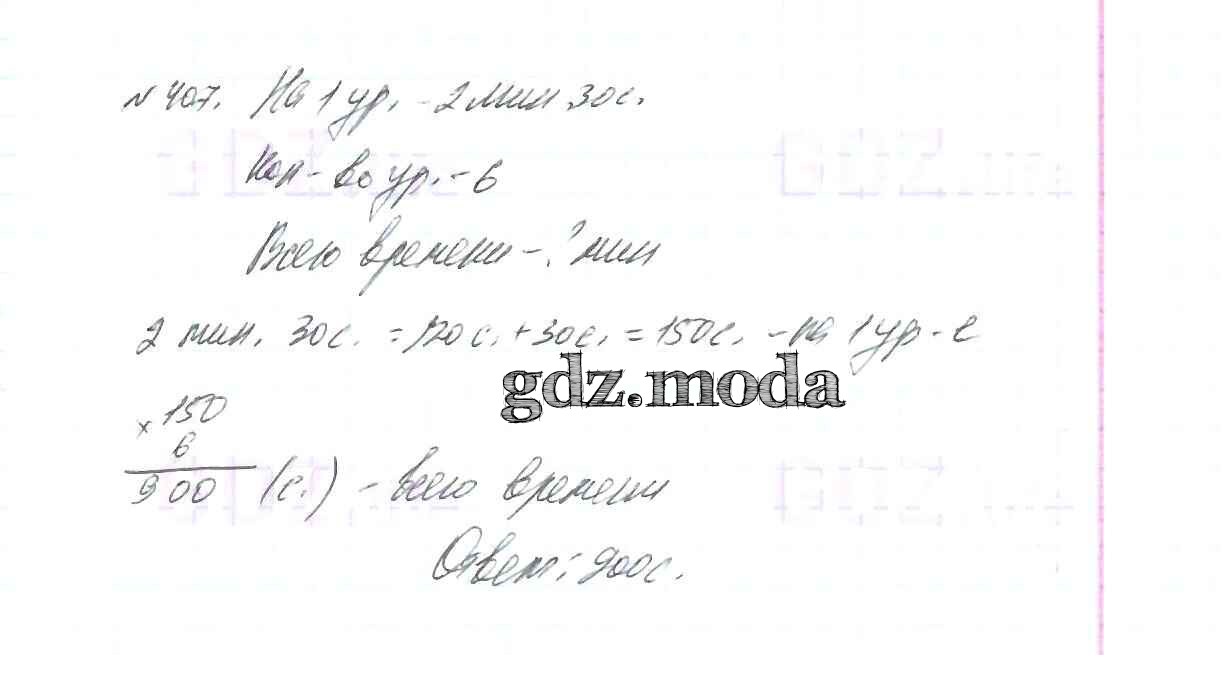 № 407. На 1 ур. - 2 мин 30с.
Кол-во ур. - 6
Всего времени - ? мин
2 мин. 30с. = 120с. + 30с. = 150с. - на 1 ур-е
gdz.moda
× 150
6
900 (с.) - всего времени
Ответ: 900с.